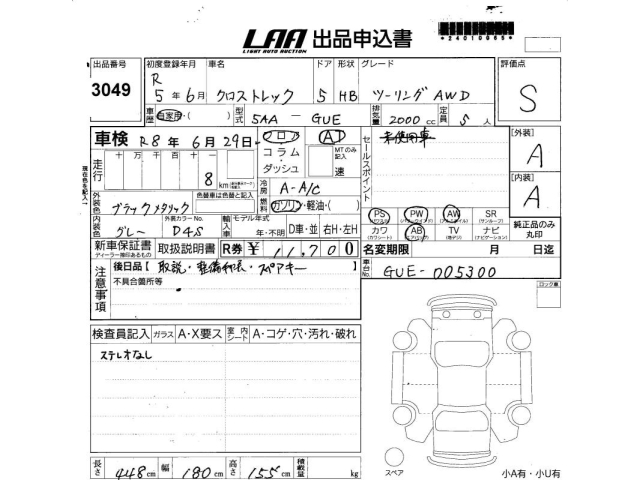 LAA 出品申込書
LIGHT AUTO AUCTION
*24010065*
出品番号 初度登録年月 車名 ドア 形状 グレード 評価点
3049 R 5年6月 クロストレック 5 HB ツーリング AWD S
車歴 自家用・( ) 型式 5AA - GUE 排気量 2000 cc 定員 5 人
車検 R8年 6月 29日 フロア AT 未使用車 [外装]
コラム・ダッシュ MTのみ記入 速 セールスポイント A
走行 十万千百十一 8 km
冷房 A-A/C [内装]
外装色 ブラックメタリック 色替車は色替と記入 燃料 ガソリン・軽油・( ) A
PS PW AW SR
(パワステ) (パワーウインド) (アルミホイル) (サンルーフ)
内装色 グレー 外装カラーNo. D4S 輸入車 モデル年式 年 D車・並 右H・左H
カワ AB TV ナビ 純正品のみ丸印
(カワシート) (エアバッグ) (地デジ) (ナビゲーション)
新車保証書 取扱説明書 R券 ¥ 11,700 名変期限 月 日迄
ディーラー捺印あるもの
注意事項 後日品【 取説・整備手帳・スペアキー 】 車台No. GUE-005300
不具合箇所等
ロック車
検査員記入 ガラス A・X要ス 室内シート A・コゲ・穴・汚れ・破れ
ステレオなし
長さ 448 cm 幅 180 cm 高さ 155 cm 積載量 kg
スペア 小A有・小U有